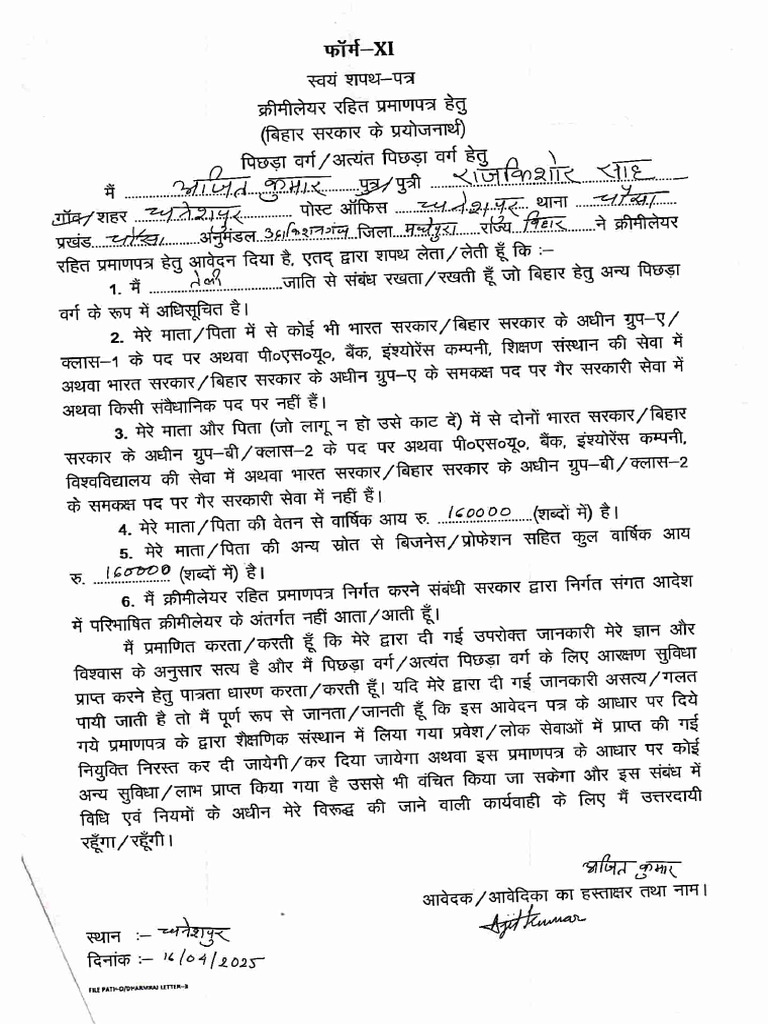 फॉर्म–XI
स्वयं शपथ–पत्र
क्रीमीलेयर रहित प्रमाणपत्र हेतु
(बिहार सरकार के प्रयोजनार्थ)
पिछड़ा वर्ग/अत्यंत पिछड़ा वर्ग हेतु
मैं अजित कुमार पुत्र/पुत्री राजकिशोर साह
गाँव/शहर धनेशपुर पोस्ट ऑफिस धनेशपुर थाना चौसा
प्रखंड चौसा अनुमंडल उदाकिशनगंज जिला मधेपुरा राज्य बिहार ने क्रीमीलेयर
रहित प्रमाणपत्र हेतु आवेदन दिया है, एतद् द्वारा शपथ लेता/लेती हूँ कि :–
1. मैं तेली जाति से संबंध रखता/रखती हूँ जो बिहार हेतु अन्य पिछड़ा
वर्ग के रूप में अधिसूचित है।
2. मेरे माता/पिता में से कोई भी भारत सरकार/बिहार सरकार के अधीन ग्रुप–ए/
क्लास–1 के पद पर अथवा पी०एस०यू०, बैंक, इंश्योरेंस कम्पनी, शिक्षण संस्थान की सेवा में
अथवा भारत सरकार/बिहार सरकार के अधीन ग्रुप–ए के समकक्ष पद पर गैर सरकारी सेवा में
अथवा किसी संवैधानिक पद पर नहीं हैं।
3. मेरे माता और पिता (जो लागू न हो उसे काट दें) में से दोनों भारत सरकार/बिहार
सरकार के अधीन ग्रुप–बी/क्लास–2 के पद पर अथवा पी०एस०यू०, बैंक, इंश्योरेंस कम्पनी,
विश्वविद्यालय की सेवा में अथवा भारत सरकार/बिहार सरकार के अधीन ग्रुप–बी/क्लास–2
के समकक्ष पद पर गैर सरकारी सेवा में नहीं हैं।
4. मेरे माता/पिता की वेतन से वार्षिक आय रु. 160000 (शब्दों में) है।
5. मेरे माता/पिता की अन्य स्रोत से बिजनेस/प्रोफेशन सहित कुल वार्षिक आय
रु. 160000 (शब्दों में) है।
6. मैं क्रीमीलेयर रहित प्रमाणपत्र निर्गत करने संबंधी सरकार द्वारा निर्गत संगत आदेश
में परिभाषित क्रीमीलेयर के अंतर्गत नहीं आता/आती हूँ।
मैं प्रमाणित करता/करती हूँ कि मेरे द्वारा दी गई उपरोक्त जानकारी मेरे ज्ञान और
विश्वास के अनुसार सत्य है और मैं पिछड़ा वर्ग/अत्यंत पिछड़ा वर्ग के लिए आरक्षण सुविधा
प्राप्त करने हेतु पात्रता धारण करता/करती हूँ। यदि मेरे द्वारा दी गई जानकारी असत्य/गलत
पायी जाती है तो मैं पूर्ण रूप से जानता/जानती हूँ कि इस आवेदन पत्र के आधार पर दिये
गये प्रमाणपत्र के द्वारा शैक्षणिक संस्थान में लिया गया प्रवेश/लोक सेवाओं में प्राप्त की गई
नियुक्ति निरस्त कर दी जायेगी/कर दिया जायेगा अथवा इस प्रमाणपत्र के आधार पर कोई
अन्य सुविधा/लाभ प्राप्त किया गया है उससे भी वंचित किया जा सकेगा और इस संबंध में
विधि एवं नियमों के अधीन मेरे विरूद्ध की जाने वाली कार्यवाही के लिए मैं उत्तरदायी
रहूँगा/रहूँगी।
अजित कुमार
आवेदक/आवेदिका का हस्ताक्षर तथा नाम।
Ajit Kumar
स्थान :– धनेशपुर
दिनांक :– 16/04/2025
FILE PATH-D/DHARMRAJ LETTER-3